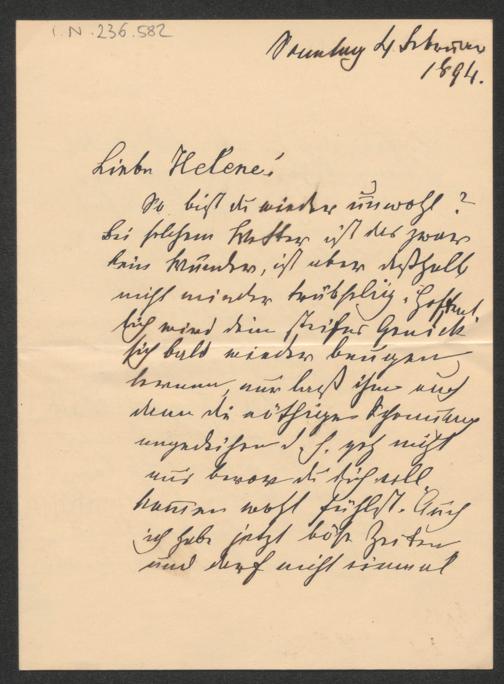 I.N. 236.582
Sonntag 4 Februar
1894.
Liebe Helene!
So bist du wieder unwohl?
Bei solchem Wetter ist das zwar
kein Wunder, ist aber deßhalb
nicht minder trübselig. Hoffent
lich wird dein steifes Genick
sich bald wieder beugen
lernen, nur laß ihm auch
dann die nöthige Schonung
angedeihen d. h. geh nicht
aus bevor du dich voll
kommen wohl fühlst. Auch
ich habe jetzt böse Zeiten
und darf nicht einmal